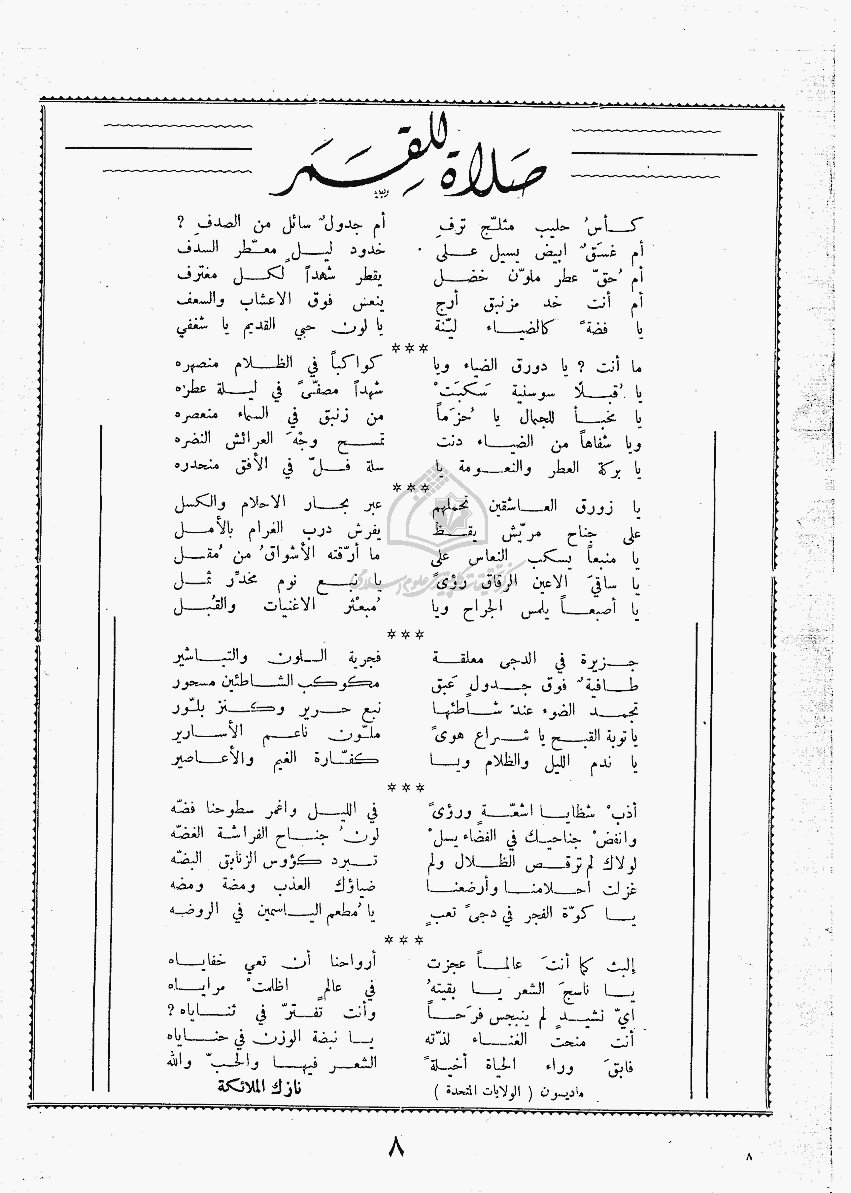 صَلاة لِلقِمَر
كأسُ حليب مثلّج ترفِ أم جدولٌ سائل من الصدفِ ؟
أم غَسَقٌ ابيض يسيل على خدود ليلٍ معطّر السدف
أم حُقّ عطر ملوّن خضل يقطر شهداً لكل مغترف
أم أنت خد مزنبق أرج ينعش فوق الاعشاب والسعف
يا فضةً كالضياء ليّنة يا لون حبي القديم يا شغفي
***
ما أنت ؟ يا دورق الضياء ويا كواكباً في الظلام منصهره
يا قُبلًا سوسنية سَكبَتْ شهداً مصفّىً في ليلة عطره
يا مخبأ للجمال يا حُزَماً من زنبق في السماء منعصره
ويا شفاهاً من الضياء دنت تمسح وجْهَ العرائش النضره
يا بركة العطر والنعومة يا سلة فلّ في الأفق منحدره
***
يا زورق العاشقين تحملهم عبر بحار الاحلام والكسل
على جناح مريّش يقظ يفرش درب الغرام بالأمل
يا منبعاً يسكب النعاس على ما أرّقته الأشواقُ من مُقل
يا ساقيَ الاعين الرقاق رؤىً يا نبع نوم مخدّر ثمل
يا أصبعاً يلمس الجراح ويا مُبعثر الاغنيات والقُبل
***
جزيرة في الدجى معلقة فجرية اللون والتباشير
طافيةٌ فوق جدولٍ عَبق مكوكب الشاطئين مسحور
تجمد الضوء عند شاطئها نبع حرير وكنز بلّور
يا توبة القبح يا شراع هوىً ملوّن ناعم الأسارير
يا ندم الليل والظلام ويا كفّارة الغيم والأعاصير
***
أذبْ شظايا اشعّةٍ ورؤىً في الليل واغمر سطوحنا فضّه
وانفضْ جناحيك في الفضاء يسلْ لونُ جناح الفراشة الغضّه
لولاك لم ترقص الظلال ولم تبرد كؤوس الزنابق البضّه
غزلت احلامنا وأرضعنا ضياؤك العذب ومضة ومضه
يا كوّة الفجر في دجىً تعبٍ يا مُطعم الياسمين في الروضه
***
إلبث كما أنتَ عالماً عجزت أرواحنا أن تعي خفاياه
يا ناسجَ الشعر يا بقيتهُ في عالمٍ اظلمتْ مراياه
ايّ نشيدٍ لم ينبجس فرَحاً وأنت تفترّ في ثناياه ؟
أنت منحت الغناء لذّته يا نبضة الوزن في حناياه
فابقَ وراء الحياة أخيلةً الشعر فيها والحبّ والله
ماديسون ( الولايات المتحدة ) نازك الملائكة
٨
٨